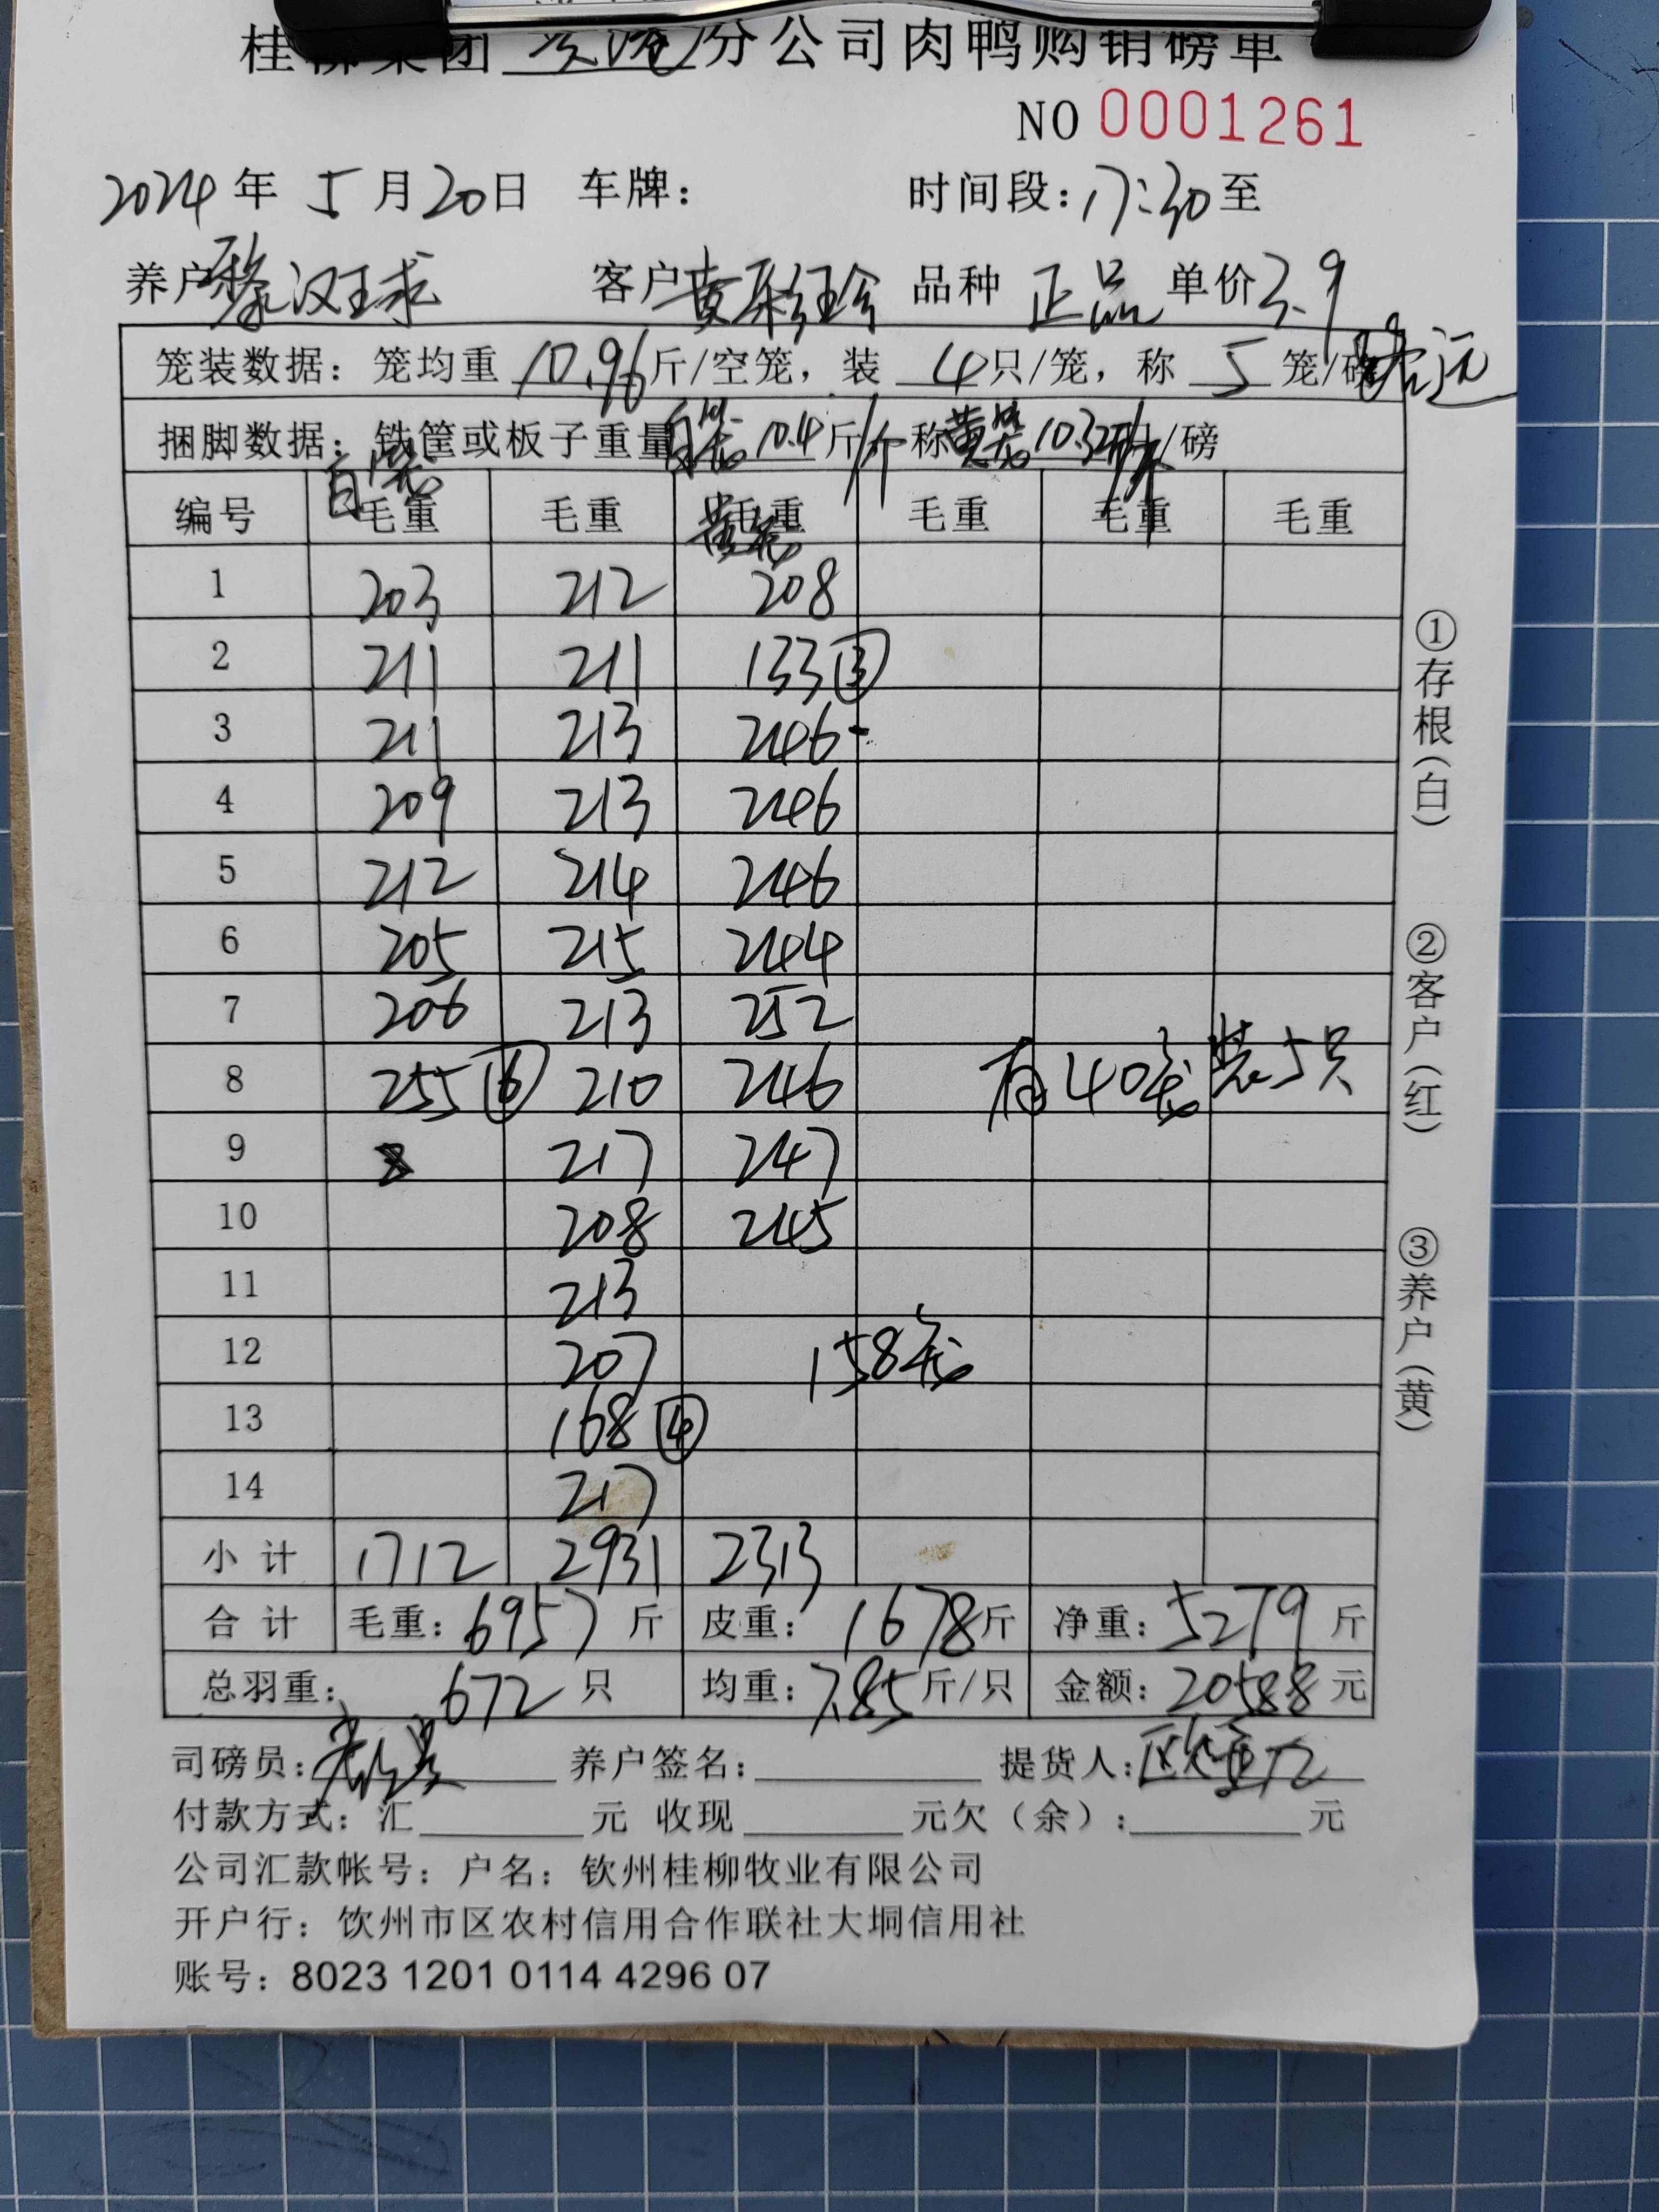 桂柳集团 分公司肉鸭购销磅单
NO 0001261
2024年 5月20日 车牌： 时间段：17:30至
养户 黎汉球 客户 黄彩珍 品种 正品 单价3.9
笼装数据：笼均重 10.96斤/空笼，装 4只/笼，称 5笼/磅
捆脚数据：铁筐或板子重量 10.4斤/个 称黄笼10.32斤/磅
编号 毛重 毛重 黄笼毛重 毛重 毛重 毛重
1 203 212 208
2 211 211 133③
3 211 213 246
4 209 213 246
5 212 214 246
6 205 215 244
7 206 213 252
8 255⑥ 210 246 有40笼装5只
9 217 247
10 208 245
11 213
12 207 158笼
13 168④
14 217
小计 1712 2931 2313
合计 毛重：6957斤 皮重：1678斤 净重：5279斤
总羽重：672只 均重：7.85斤/只 金额：20588元
司磅员： 养户签名： 提货人：
付款方式：汇 元 收现 元欠（余）： 元
公司汇款帐号：户名：钦州桂柳牧业有限公司
开户行：饮州市区农村信用合作联社大垌信用社
账号：8023 1201 0114 4296 07
①存根（白）
②客户（红）
③养户（黄）